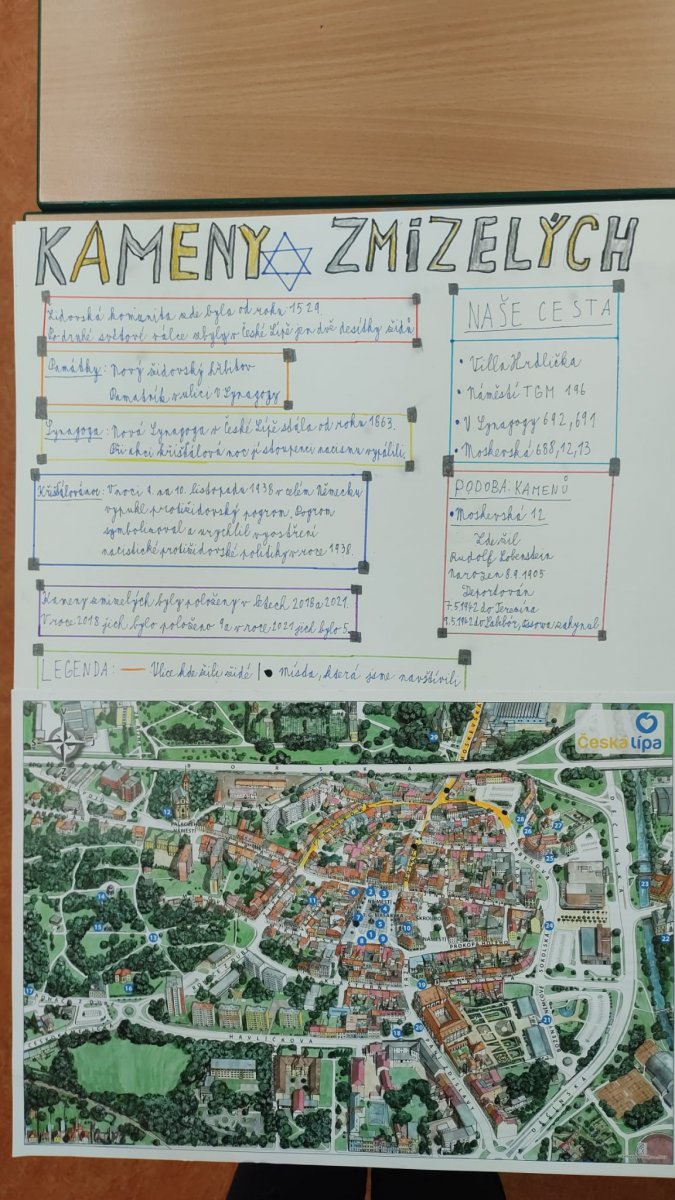 KAMENY ZMIZELÝCH
Židovská komunita zde byla od roku 1529.
Po druhé světové válce zbyly v České Lípě jen dvě desítky židů
Památky: Nový židovský hřbitov
Památník v ulici V Synagogy
Synagoga: Nová Synagoga v České Lípě stála od roku 1863.
Při akci křišťálová noc ji stoupenci nacismu vypálili.
Křišťálová noc: V noci 9. na 10. listopadu 1938 v celém Německu
vypukl protižidovský pogrom. Pogrom
symbolizoval a urychlil vyostření
nacistické protižidovské politiky v roce 1938.
Kameny zmizelých byly položeny v letech 2018 a 2021.
V roce 2018 jich bylo položeno 9 a v roce 2021 jich bylo 5.
LEGENDA: Ulice kde žili židé | Místa, která jsme navštívili
NAŠE CESTA
• Villa Hrdlička
• Náměstí TGM 196
• V Synagogy 692, 691
• Moskevská 688, 12, 13
PODOBA KAMENŮ
• Moskevská 12
Zde žil
Rudolf Lobenstein
Narozen 8.9.1905
Deportován
7.5.1942 do Terezína
9.5.1942 do Sobibór, Ossowa zahynul
Česká Lípa
BORSKÁ
MOSKEVSKÁ
DĚČÍNSKÁ
NÁMĚSTÍ
ŠKROUP
NÁMĚSTÍ
PROKOPA HOLÉHO
SOKOLSKÁ
HAVLÍČKOVA